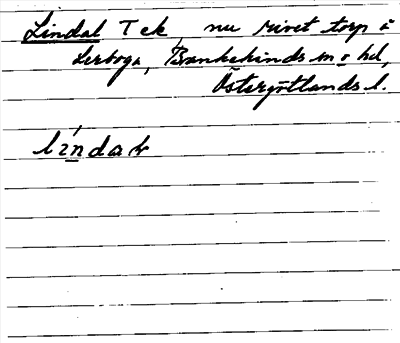 Lindal Tek, nu rivet torp å
Lerboga, Bankekinds sn o hd,
Östergötlands l.
lindab